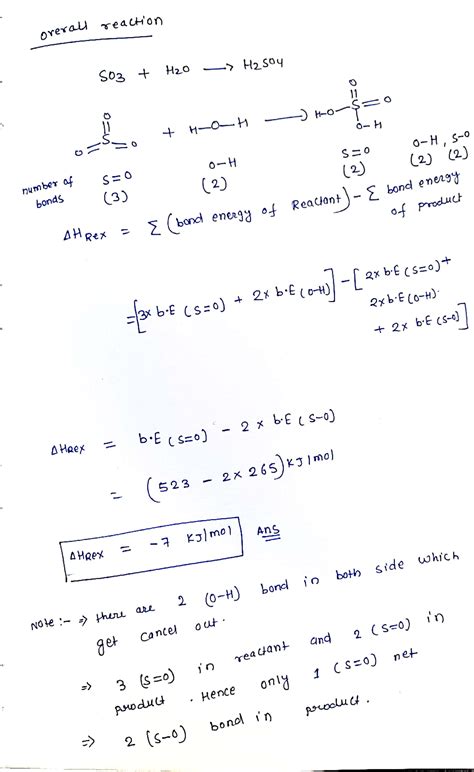 overall reaction
SO3 + H2O → H2SO4
O
S
O O
+ H-O-H →
O
HO-S=O
O-H
number of bonds
S=O
(3)
O-H
(2)
S=O
(2)
O-H, S-O
(2) (2)
ΔHRex = Σ (bond energy of Reactant) - Σ bond energy of product
= [3x b.E (S=O) + 2x b.E (O-H)] - [2x b.E (S=O) +
2x b.E (O-H).
+ 2x b.E (S-O)]
ΔHRex = b.E (S=O) - 2 x b.E (S-O)
= (523 - 2x 265) KJ/mol
ΔHRex = -7 KJ/mol Ans
Note :- ⇒ there are 2 (O-H) bond in both side which
get cancel out.
⇒ 3 (S=O) in reactant and 2 (S=O) in
product. Hence only 1 (S=O) net
⇒ 2 (S-O) bond in product.